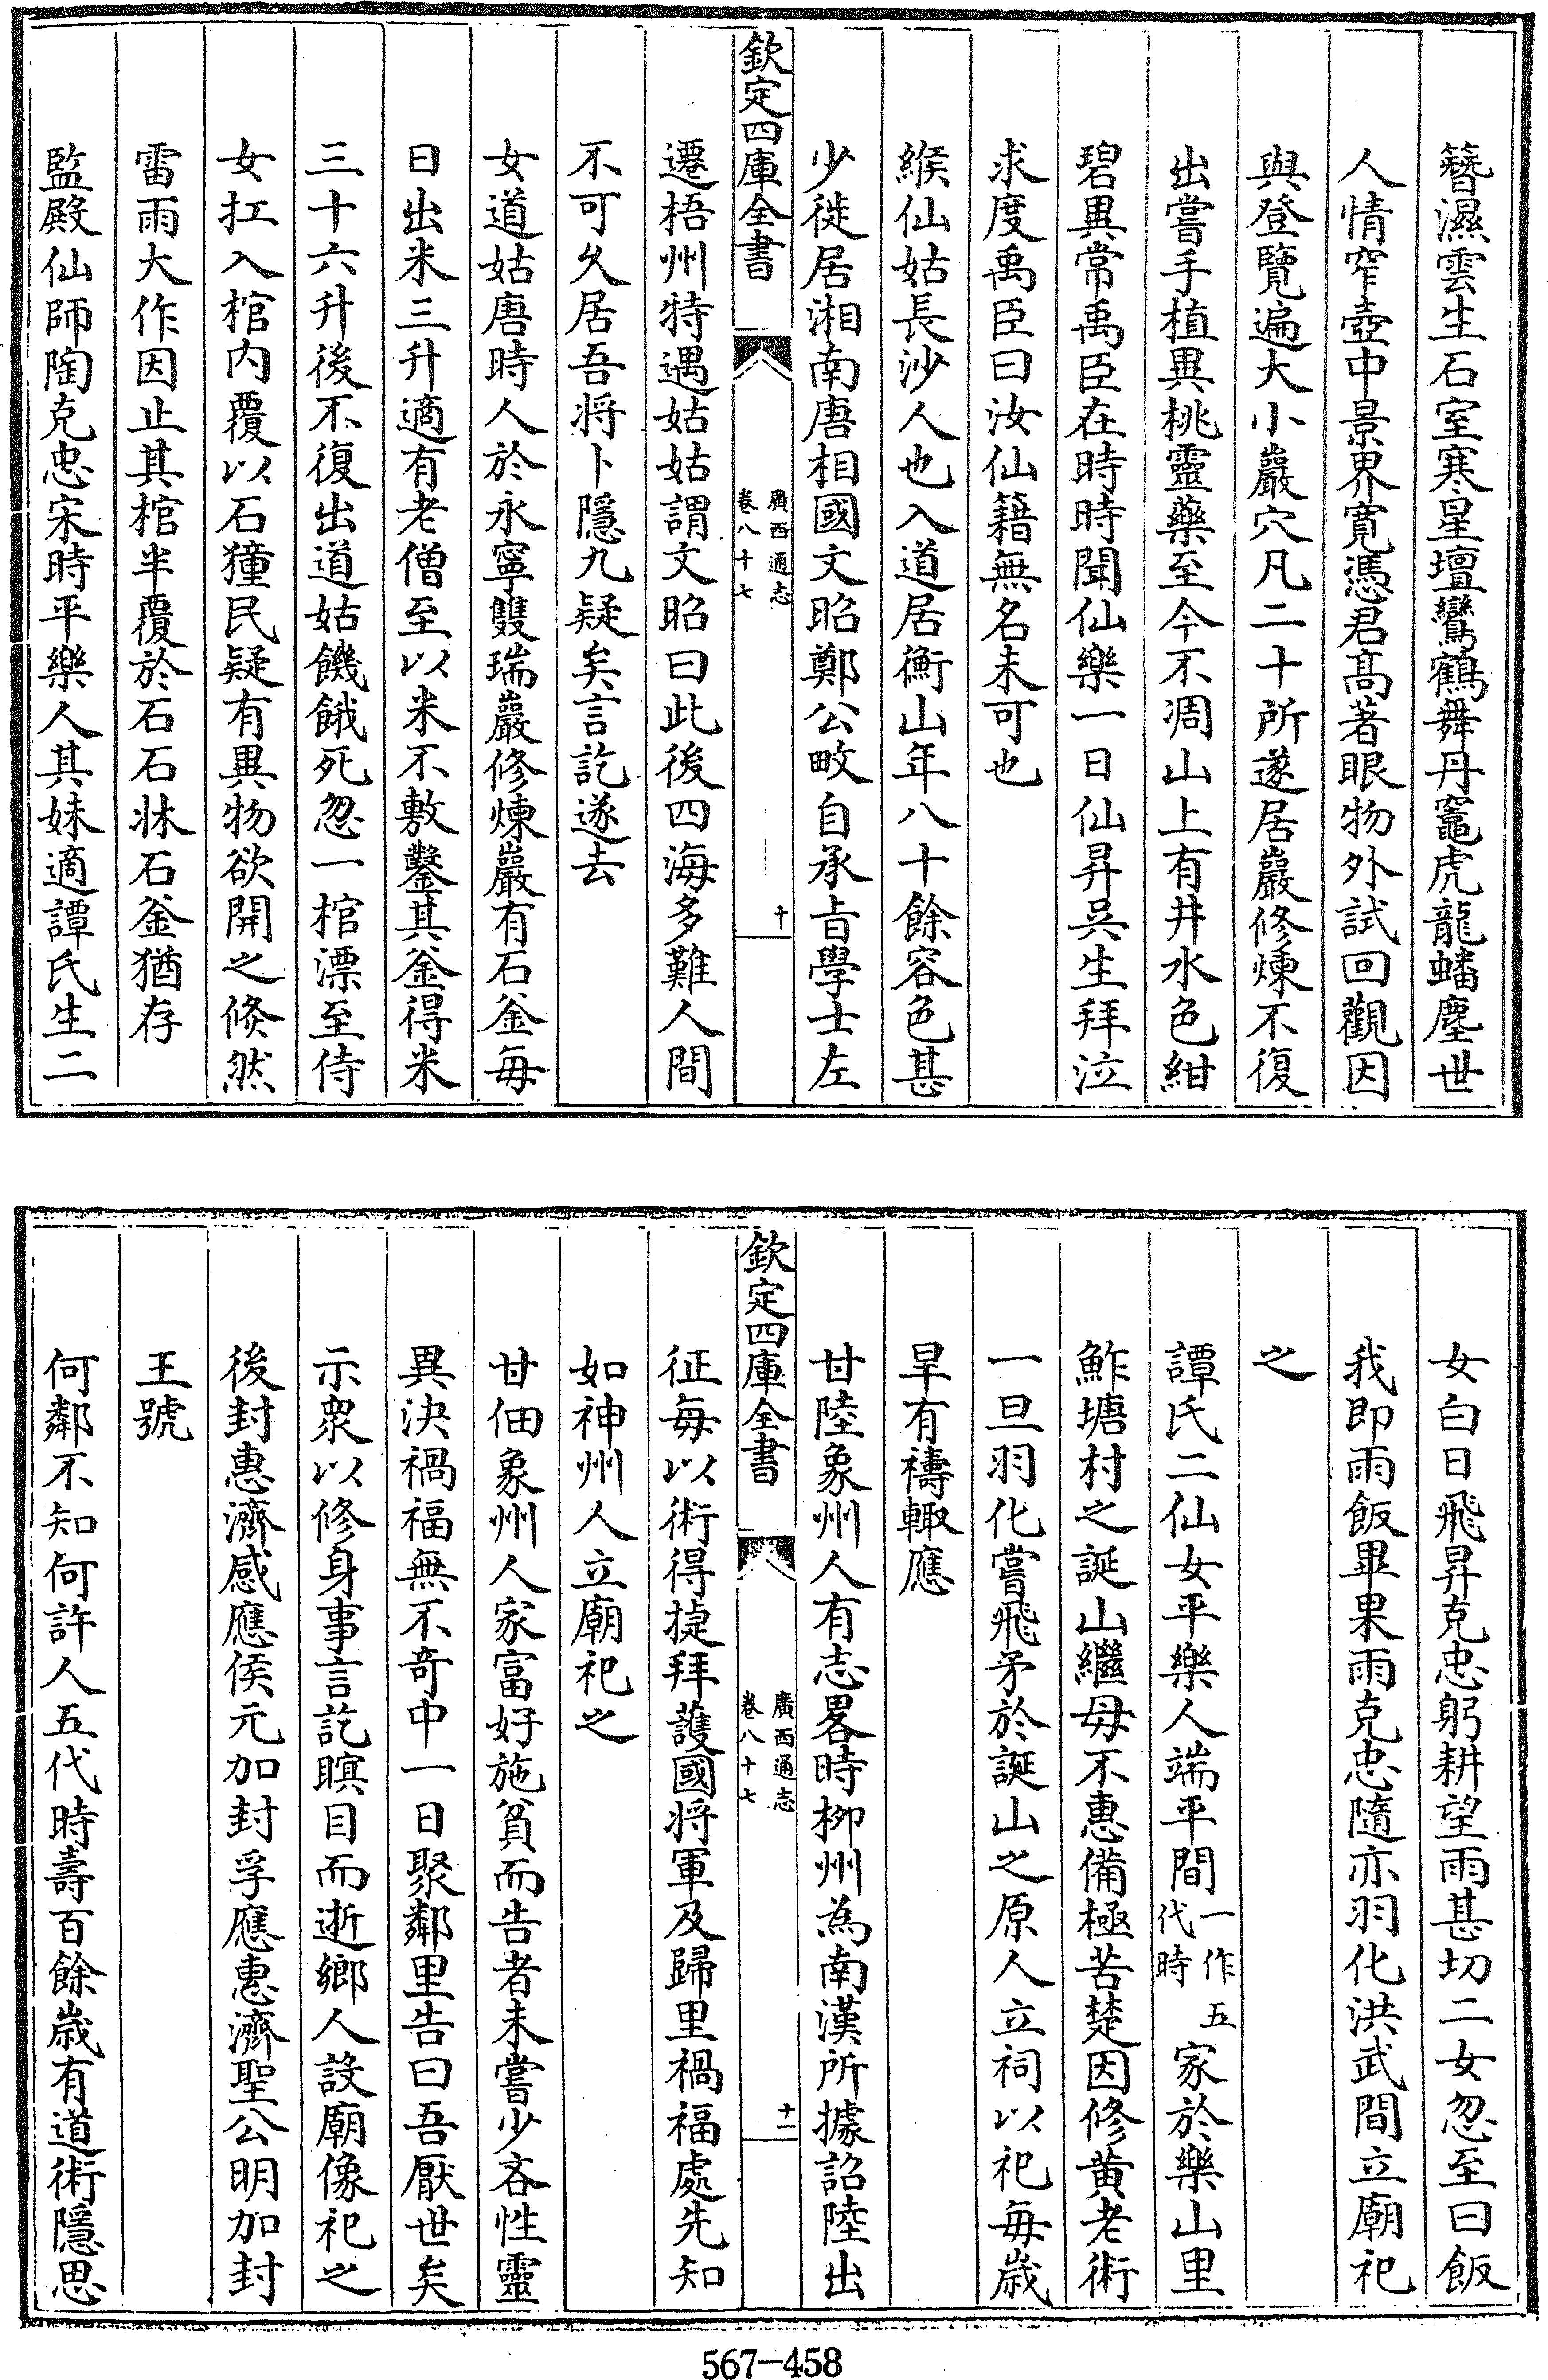 簪濕雲生石室寒星壇鸞鶴舞丹竈虎龍蟠塵世
人情窄壺中景界寛憑君髙著眼物外試回觀因
與登覽遍大小巖穴凡二十所遂居巖修煉不復
出嘗手植異桃靈藥至今不凋山上有井水色紺
碧異常禹臣在時時聞仙樂一日仙昇吳生拜泣
求度禹臣曰汝仙籍無名未可也
緱仙姑長沙人也入道居衡山年八十餘容色甚
少徙居湘南唐相國文昭鄭公畋自承㫖學士左
欽定四庫全書
廣西通志
卷八十七
十
遷梧州特遇姑姑謂文昭曰此後四海多難人間
不可久居吾将卜隱九疑矣言訖遂去
女道姑唐時人於永寧雙瑞巖修煉巖有石釜毎
日出米三升適有老僧至以米不敷鑿其釜得米
三十六升後不復出道姑饑餓死忽一棺漂至侍
女扛入棺内覆以石獞民疑有異物欲開之倐然
雷雨大作因止其棺半覆於石石牀石釜猶存
監殿仙師陶克忠宋時平樂人其妹適譚氏生二
女白日飛昇克忠躬耕望雨甚切二女忽至曰飯
我即雨飯畢果雨克忠隨亦羽化洪武間立廟祀
之
譚氏二仙女平樂人端平間一作五代時家於樂山里
鮓塘村之誕山繼母不惠備極苦楚因修黄老術
一旦羽化嘗飛矛於誕山之原人立祠以祀毎歳
早有禱輙應
甘陸象州人有志畧時栁州為南漢所據詔陸出
欽定四庫全書
廣西通志
卷八十七
十一
征毎以術得捷拜護國将軍及歸里禍福處先知
如神州人立廟祀之
甘佃象州人家富好施貧而告者未嘗少吝性靈
異決禍福無不竒中一日聚鄰里告曰吾厭世矣
示衆以修身事言訖瞑目而逝鄉人設廟像祀之
後封惠濟感應侯元加封孚應惠濟聖公明加封
王號
何鄰不知何許人五代時壽百餘歳有道術隱思
567-458